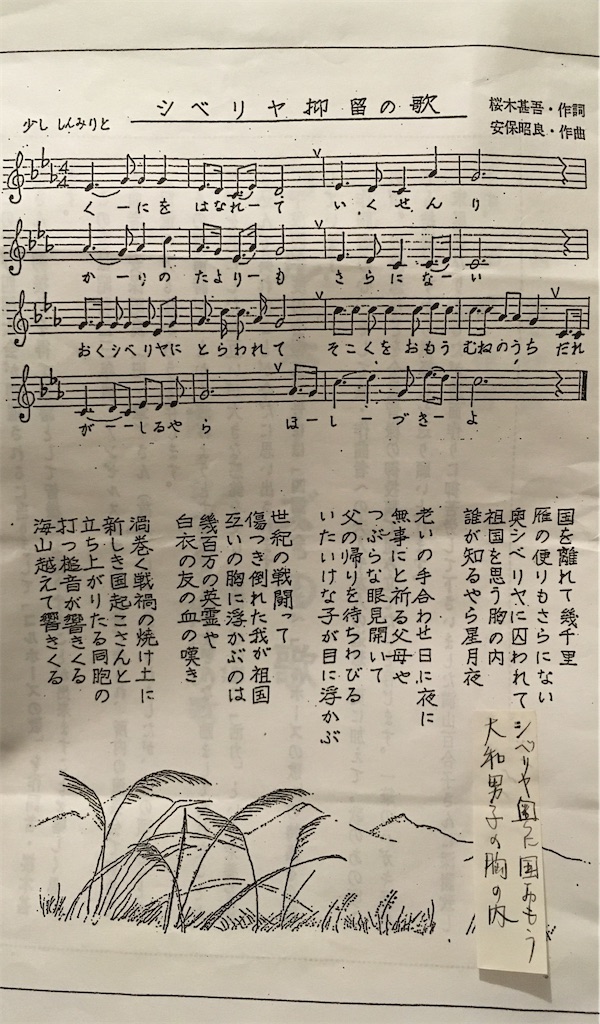 シベリヤ抑留の歌
桜木甚吾・作詞
安保昭良・作曲
少ししんみりと
くーにを はなれーて いくせんり
かーりの たよりーも さらになーい
おくシベリヤに とらわれて そこくをおもう むねのうち だれ
がーーしるやら ほーしーづきーよ
国を離れて幾千里
雁の便りもさらにない
奥シベリヤに囚われて
祖国を思う胸の内
誰が知るやら星月夜
老いの手合わせ日に夜に
無事にと祈る父母や
つぶらな眼見開いて
父の帰りを待ちわびる
いたいけな子が目に浮かぶ
世紀の戦闘って
傷つき倒れた我が祖国
互いの胸に浮かぶのは
幾百万の英霊や
白衣の友の血の嘆き
渦巻く戦禍の焼け土に
新しき国起こさんと
立ち上がりたる同胞の
打つ槌音が響きくる
海山越えて響きくる
大和男子の胸の内